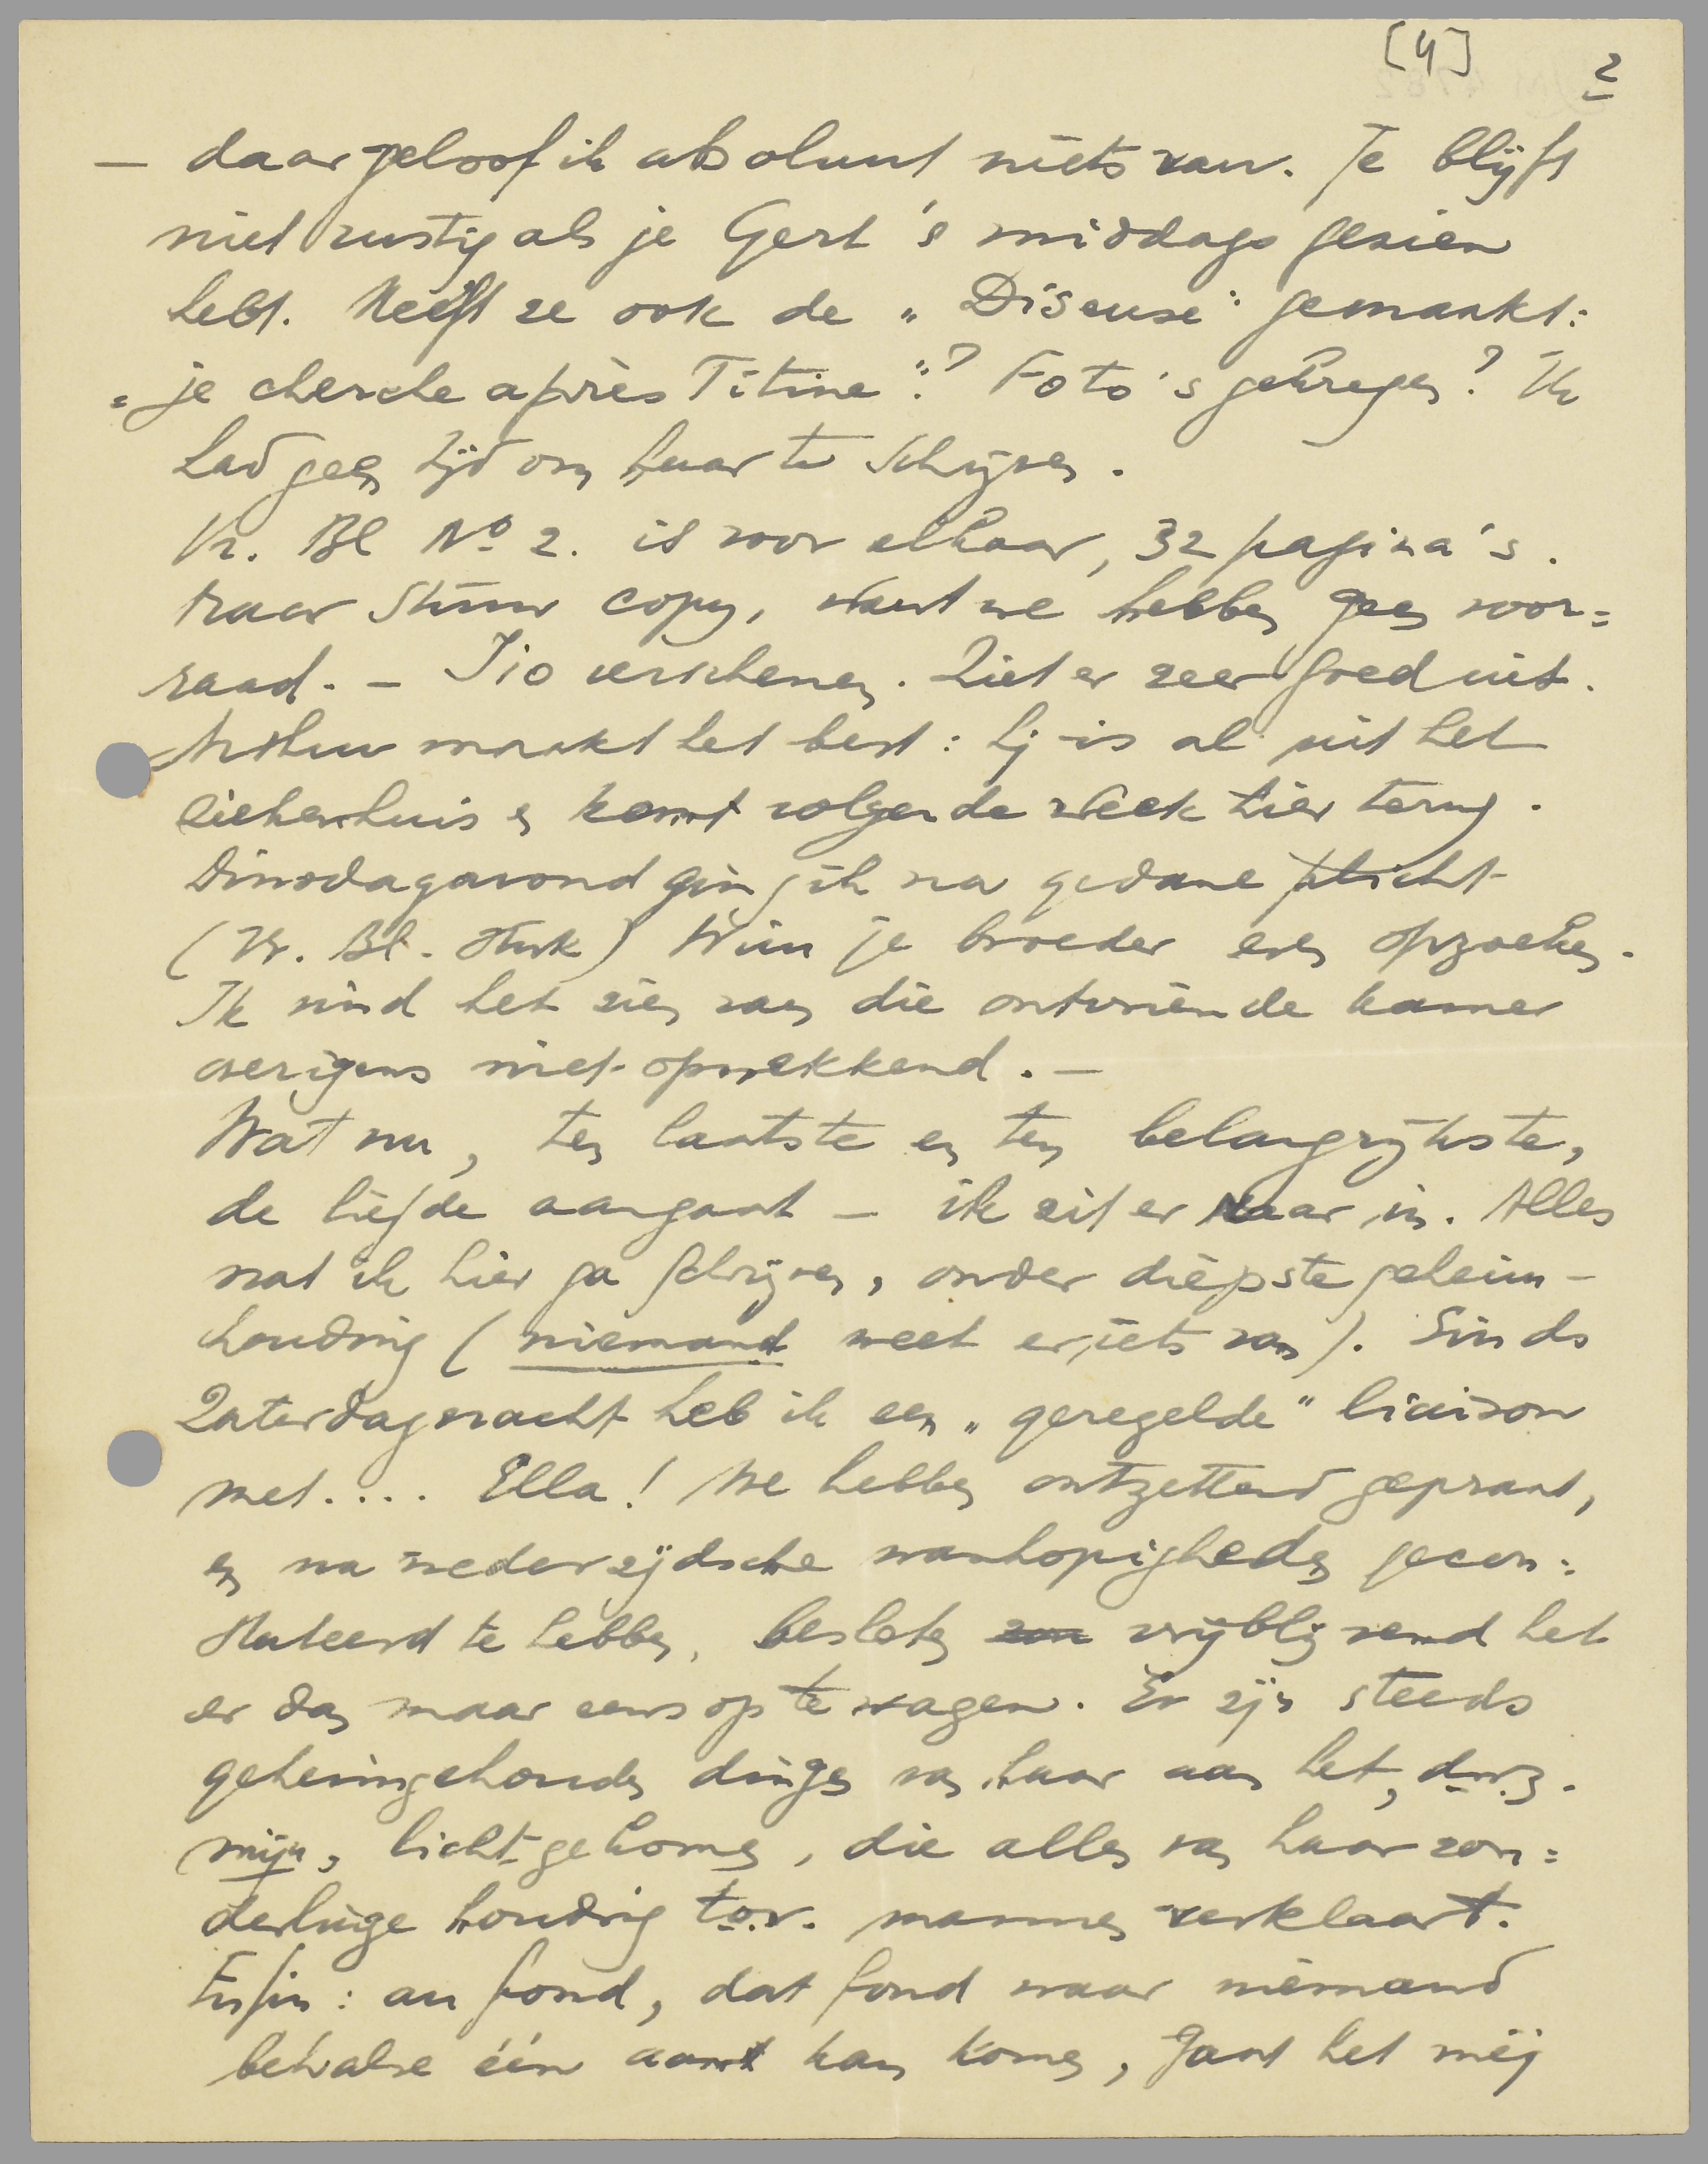 [4] 2
— daar geloof ik absoluut niets van. Je blijft
niet rustig als je Gert 's middags gezien
hebt. Heeft ze ook de „Diseuse" gemaakt:
„je cherche après Titine"? Foto's gekregen? Ik
had geen tijd om haar te schrijven.
Vr. Bl No 2. is voor elkaar, 32 pagina's.
Maar stuur copy, want we hebben geen voor=
raad. — I 10 verschenen. Ziet er zeer goed uit.
Arthur maakt het best: hij is al uit het
ziekenhuis en komt volgende week hier terug.
Dinsdagavond ging ik na gedane plicht
(Vr. Bl. druk) Wim je broeder even opzoeken.
Ik vind het zien van die ontwriende kamer
overigens niet opwekkend. —
Wat nu, ten laatste en ten belangrijkste,
de liefde aangaat — ik zit er naar in. Alles
wat ik hier ga schrijven, onder diepste geheim-
houding (niemand weet er iets van). Sinds
Zaterdagnacht heb ik een „geregelde" liaison
met.... Ella! We hebben ontzettend gepraat,
en na wederzijdsche wanhopigheden gecon=
stateerd te hebben, besloten vrijblijvend het
er dan maar eens op te wagen. Er zijn steeds
geheimgehouden dingen van haar aan het, d.w.z.
mijn, licht gekomen, die alles van haar zon=
derlinge houding t.o.v. mannen verklaart.
Enfin: au fond, dat fond waar niemand
behalve één aan kan komen, gaat het mij